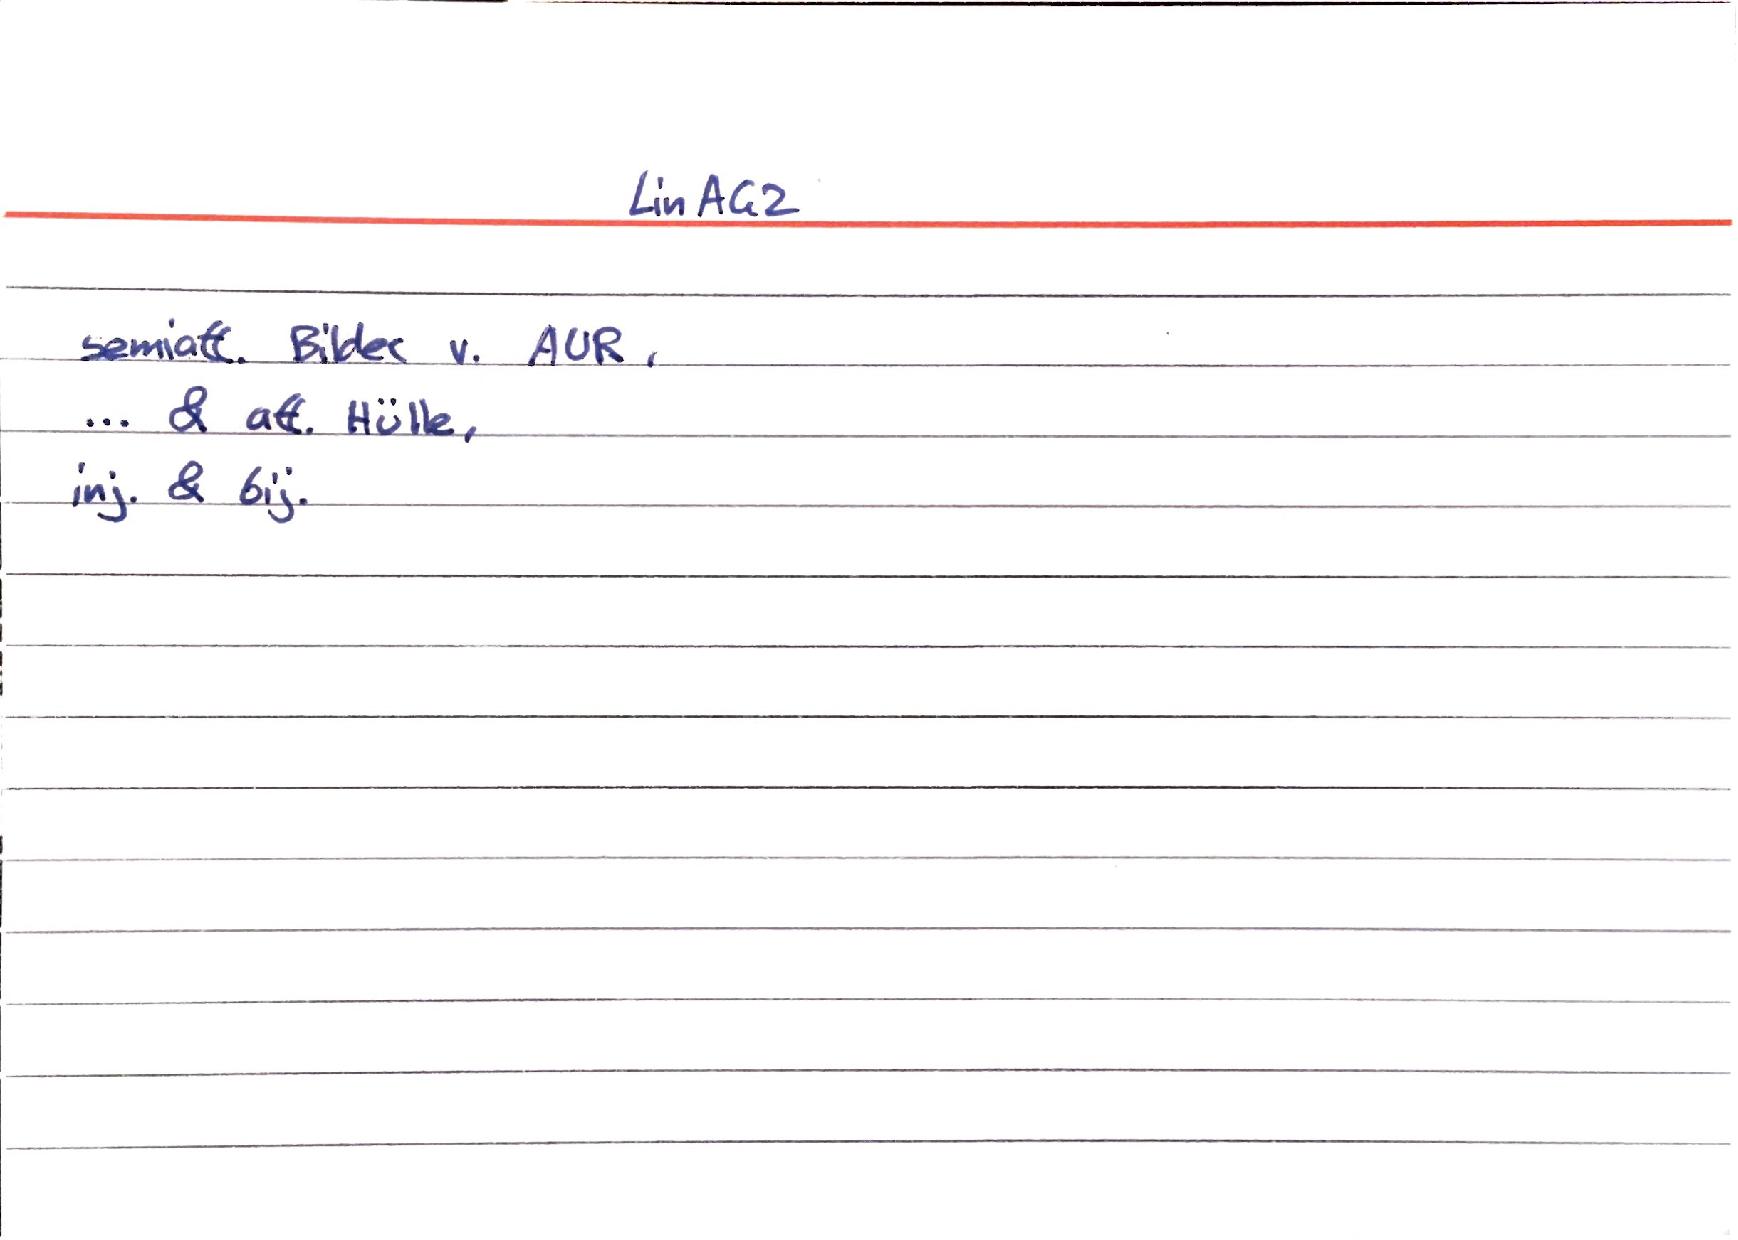 LinAG2
semiaff. Bilder v. AUR,
... & aff. Hülle,
inj. & bij.